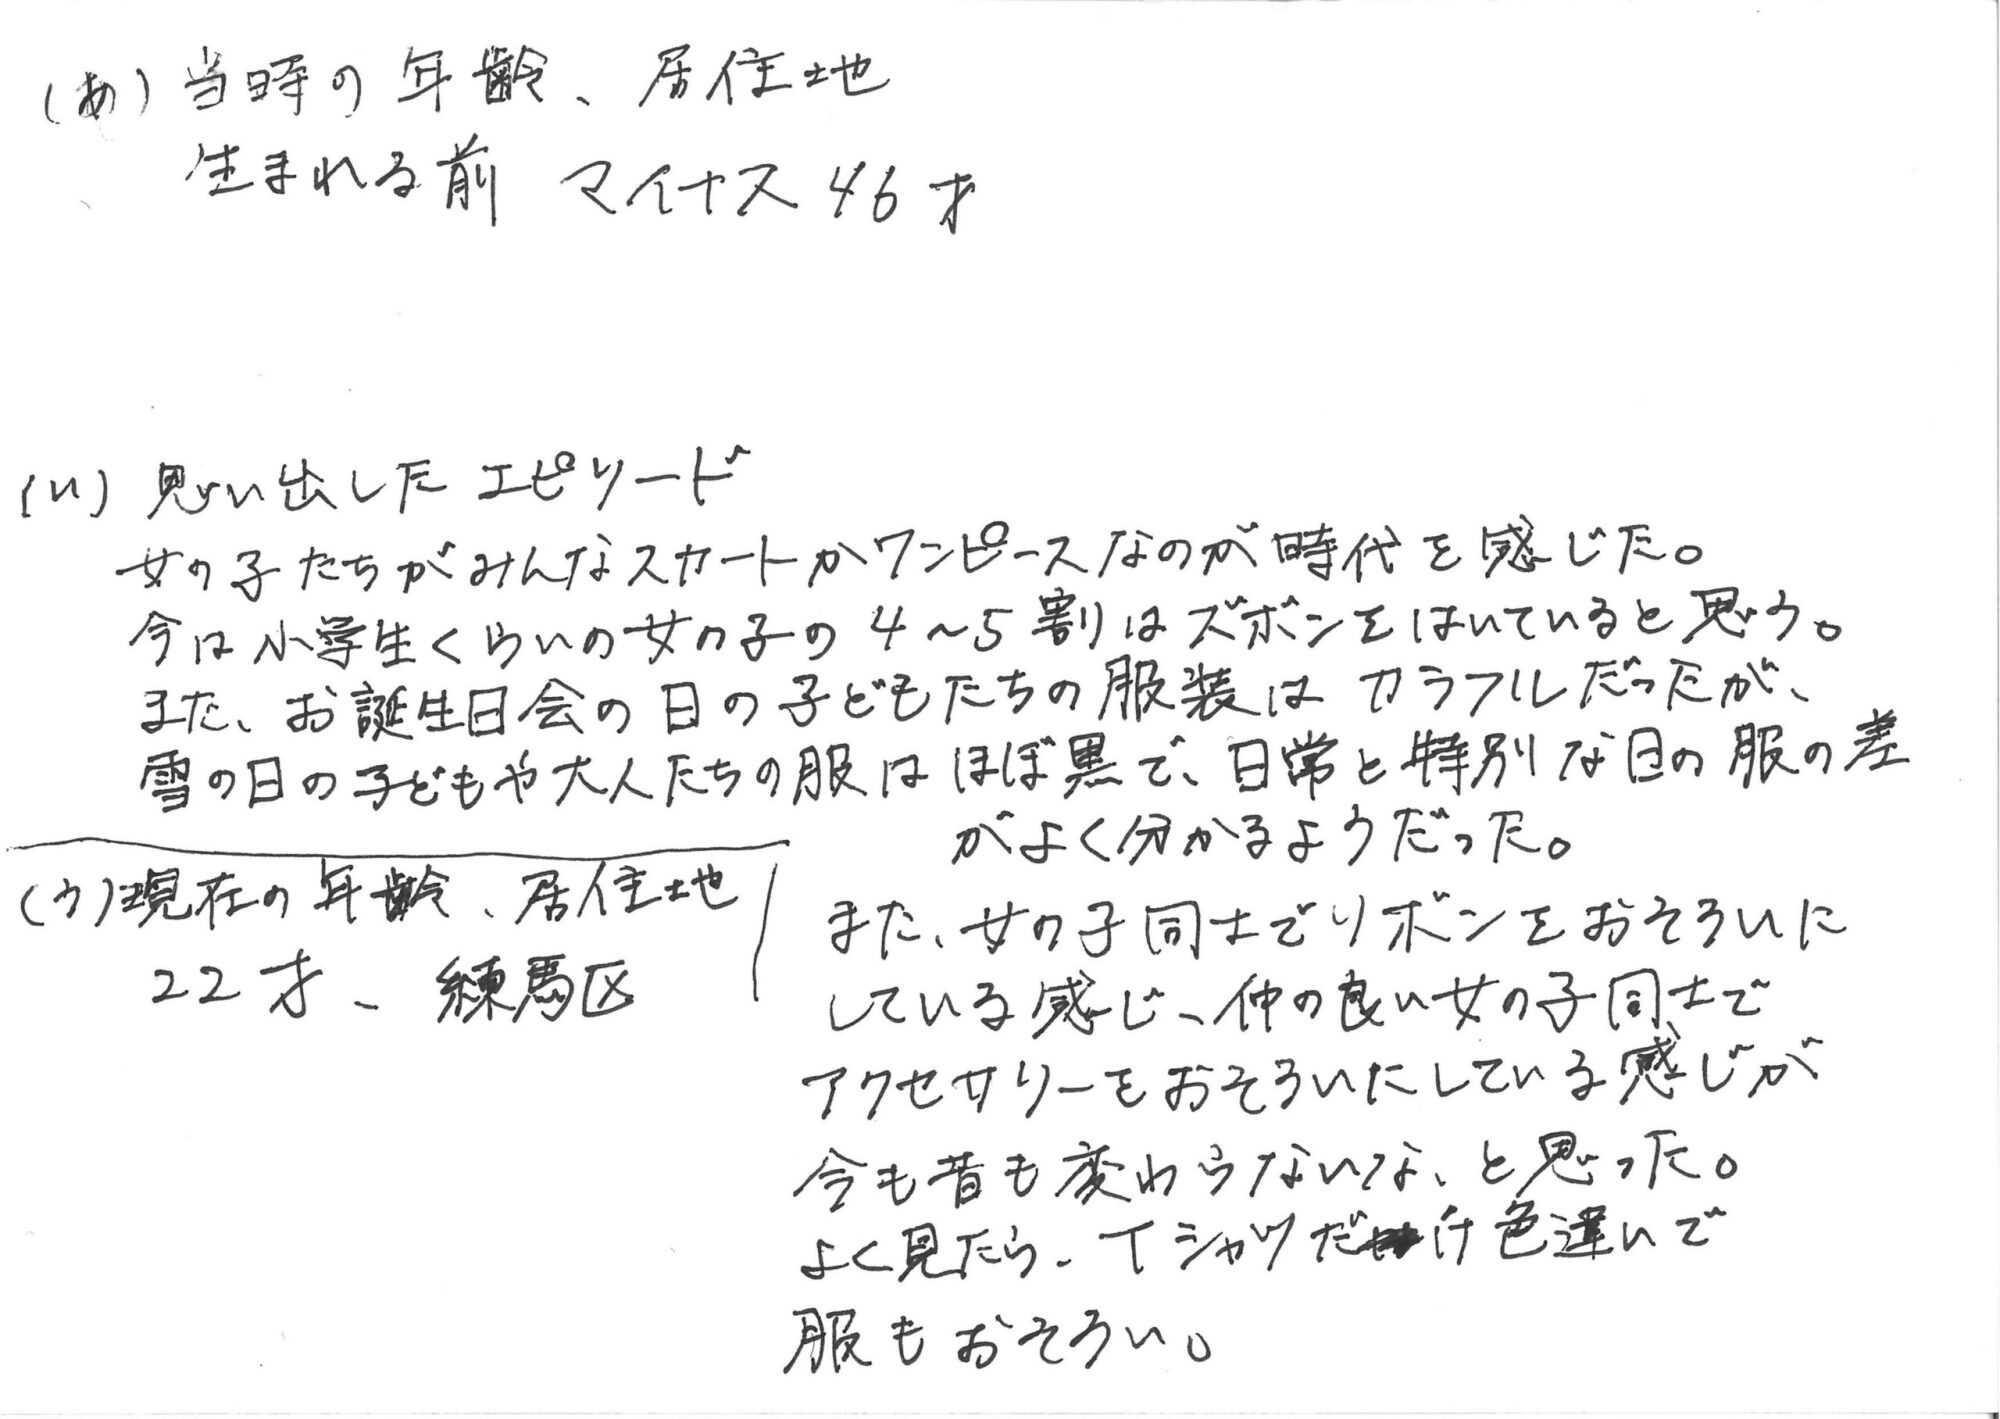 (あ)当時の年齢、居住地
生まれる前 マイナス46才
(い)思い出したエピソード
女の子たちがみんなスカートかワンピースなのが時代を感じた。
今は小学生くらいの女の子の4～5割はズボンをはいていると思う。
また、お誕生日会の日の子どもたちの服装はカラフルだったが、
雪の日の子どもや大人たちの服はほぼ黒で、日常と特別な日の服の差
がよく分かるようだった。
また、女の子同士でリボンをおそろいに
している感じ、仲の良い女の子同士で
アクセサリーをおそろいにしている感じが
今も昔も変わらないな、と思った。
よく見たら、Tシャツだけ色違いで
服もおそろい。
(う)現在の年齢、居住地
22才、練馬区